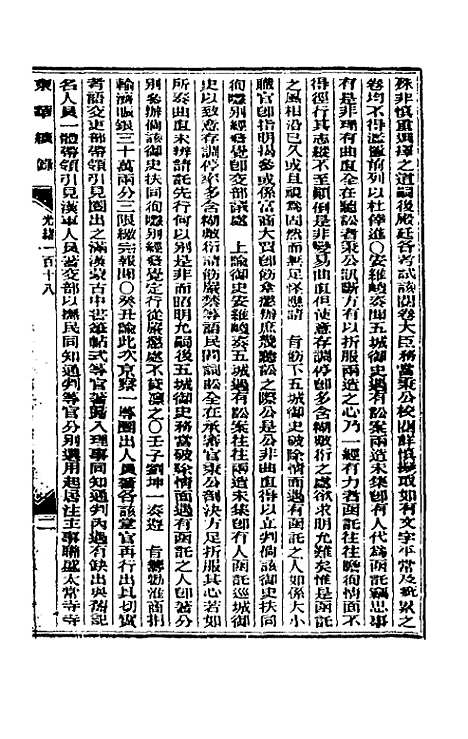 殊非慎重選擇之道嗣後殿廷各考試該閱卷大臣務當秉公校閱詳慎擬取如有文字平常及疵累之
卷均不得濫置前列以杜倖進〇安維峻奏聞五城御史遇有訟案兩造未集卽有人代為函託竊思事
有是非理有曲直全在聽訟者秉公訊斷方有以折服兩造之心乃一經有力者函託往往瞻徇情面不
得徑行其志縱不至顛倒是非變易曲直但使意存調停卽多含糊敷衍之處欲求明允難矣惟是函託
之風相沿已久或且視為固然而無足怪應請 旨飭下五城御史破除情面遇有函託之人如係大小
職官卽指明揭參或係富商大賈卽飭拿懲辦庶幾聽訟之際公是公非曲直得以立判倘該御史扶同
徇隱別經發覺卽交部議處 上諭御史安維峻奏五城遇有訟案往往兩造未集卽有人函託巡城御
史以致意存調停率多含糊敷衍請飭嚴禁等語民間詞訟全在承審官秉公剖決方足折服其心若如
所奏曲直未辨請託先行何以別是非而昭明允嗣後五城御史務當破除情面遇有函託之人卽著分
別參辦倘該御史扶同徇隱別經發覺定行從嚴懲處不貸〇壬子劉坤一奏遵 旨勸淮商捐
輸濟賑銀三十萬兩分三限繳完報聞〇癸丑諭此次京察一等圈出人員著各該堂官再行出具切實
考語交吏部帶領引見圈出之滿漢蒙古中書筆帖式等官著歸入理事同知通判內遇有缺出與舊記
名人員一體帶領引見漢軍人員著交部以撫民同知通判等官分別選用起居注主事聯盛太常寺寺
東華續錄 光緒一百十八 二